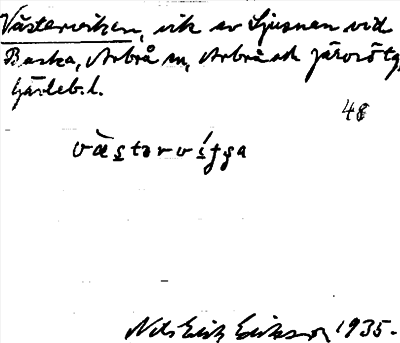 Västerviken, vik av Ljusnan vid
Backa, Arbrå sn, Arbrå och Järvsö tg,
Gävleb. l.
48
västərvíʃʃa
Nils Erik Eriksson 1935.